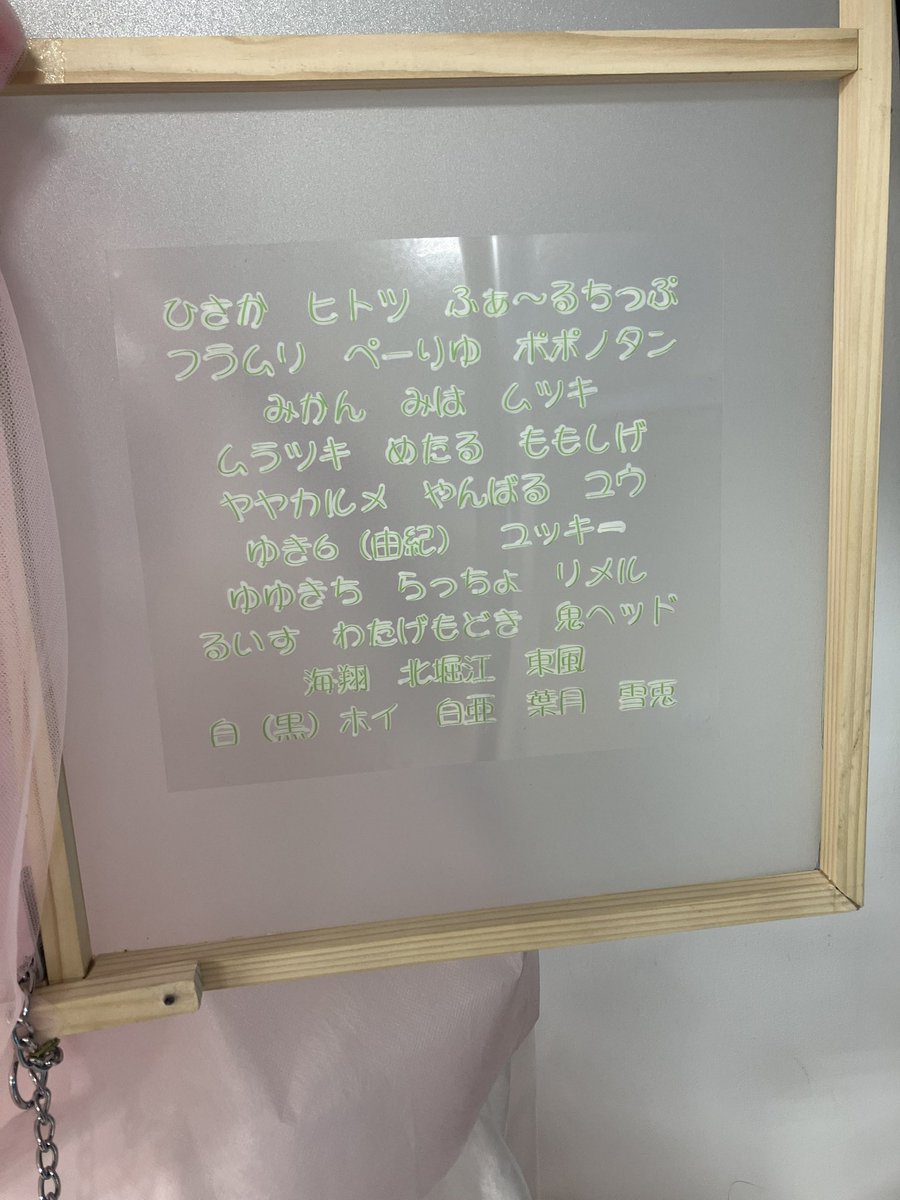 ひさか　ヒトツ　ふぁ～るちっぷ
フラムリ　ぺーりゆ　ポポノタン
みかん　みは　ムツキ
ムラツキ　めたる　ももしげ
ヤヤカルメ　やんばる　ユウ
ゆき6（由紀）　ユッキー
ゆゆきち　らっちょ　リメル
るいす　わたげもどき　鬼ヘッド
海翔　北堀江　東風
白（黒）ホイ　白亜　葉月　雪兎